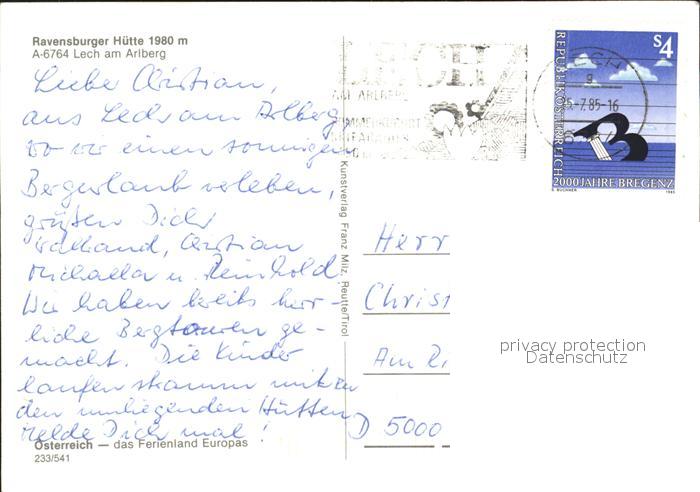 Ravensburger Hütte 1980 m
A-6764 Lech am Arlberg
Liebe Christian,
aus Lech am Arlberg
wo wir einen sonnigen
Bergurlaub verleben,
grüßen Dich
Christian
Michaela u. Reinhold.
Wir haben bereits herr-
liche Bergtouren ge-
macht. Die Kinder
laufen stramm mit zu
den umliegenden Hütten
melde Dich mal!
Österreich — das Ferienland Europas
233/541
Kunstverlag Franz Milz, Reutte/Tirol
LECH
AM ARLBERG
LECH
25-7.85-16
REPUBLIK ÖSTERREICH
S4
2000 JAHRE BREGENZ
1985
Herr
Christ
Am Ri
D 5000
privacy protection
Datenschutz